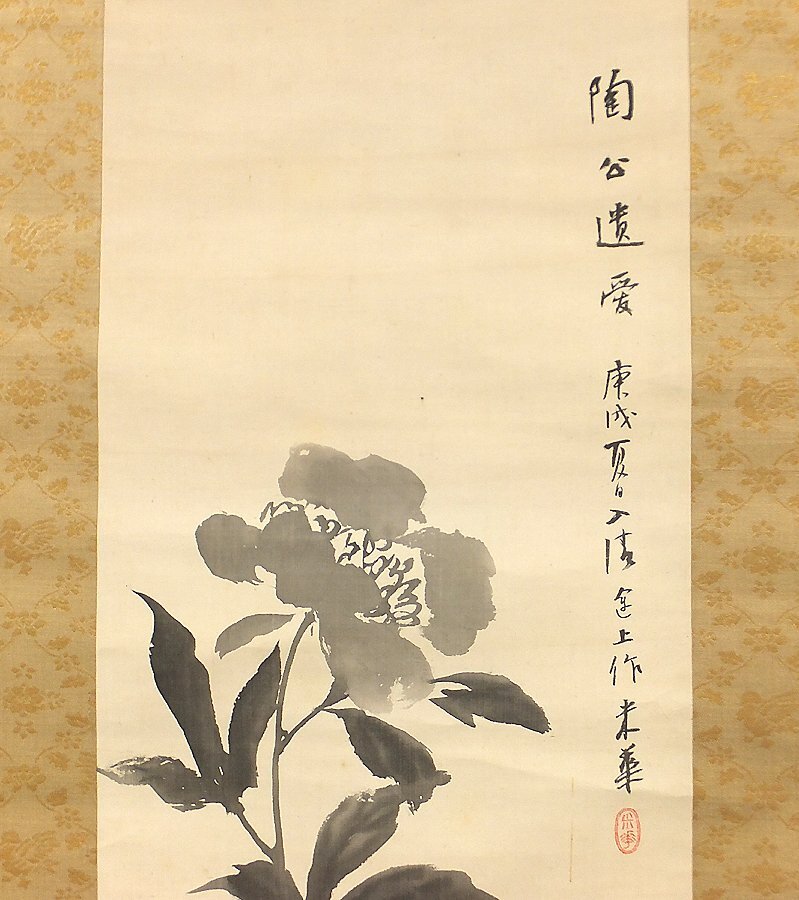 陶公遺愛 庚戌夏日入清途上作 米華
米華